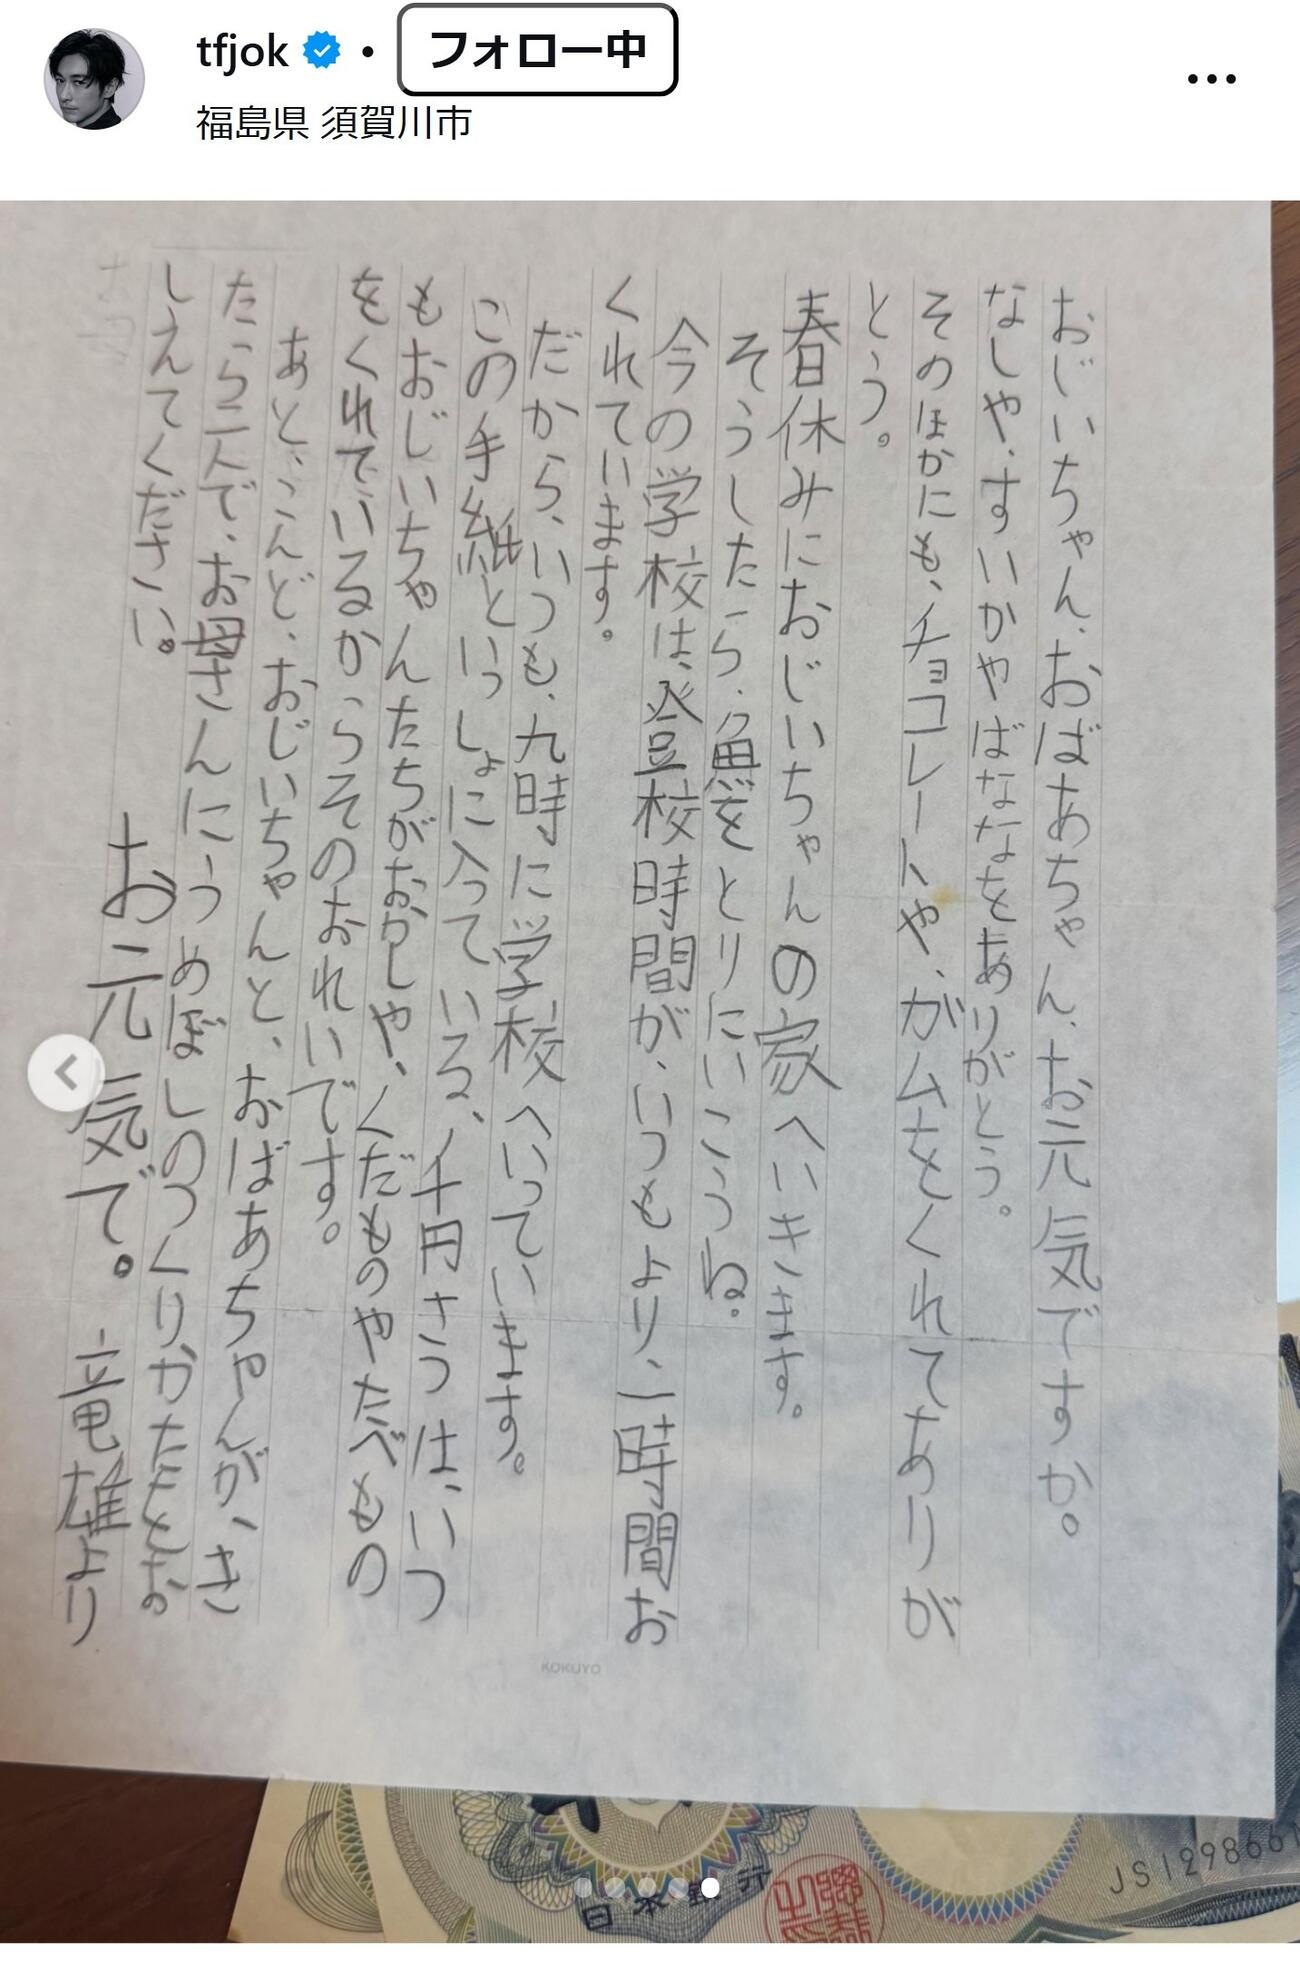 tfjok
•
フォロー中
福島県 須賀川市
おじいちゃん、おばあちゃん、お元気ですか。
なしや、すいかやばななをありがとう。
そのほかにも、チョコレートや、ガムをくれてありが
とう。
春休みにおじいちゃんの家へいきます。
そうしたら、魚をとりにいこうね。
今の学校は、登校時間が、いつもより、一時間お
くれています。
だから、いつも、九時に学校へいっています。
この手紙といっしょに入っている、千円さつは、いつ
もおじいちゃんたちがおかしや、くだものやたべもの
をくれているからそのおれいです。
あと、こんど、おじいちゃんと、おばあちゃんが、き
たら二人で、お母さんにうめぼしのつくりかたをお
しえてください。
お元気で。 竜雄より
KOKUYO
日本銀行
JS129866